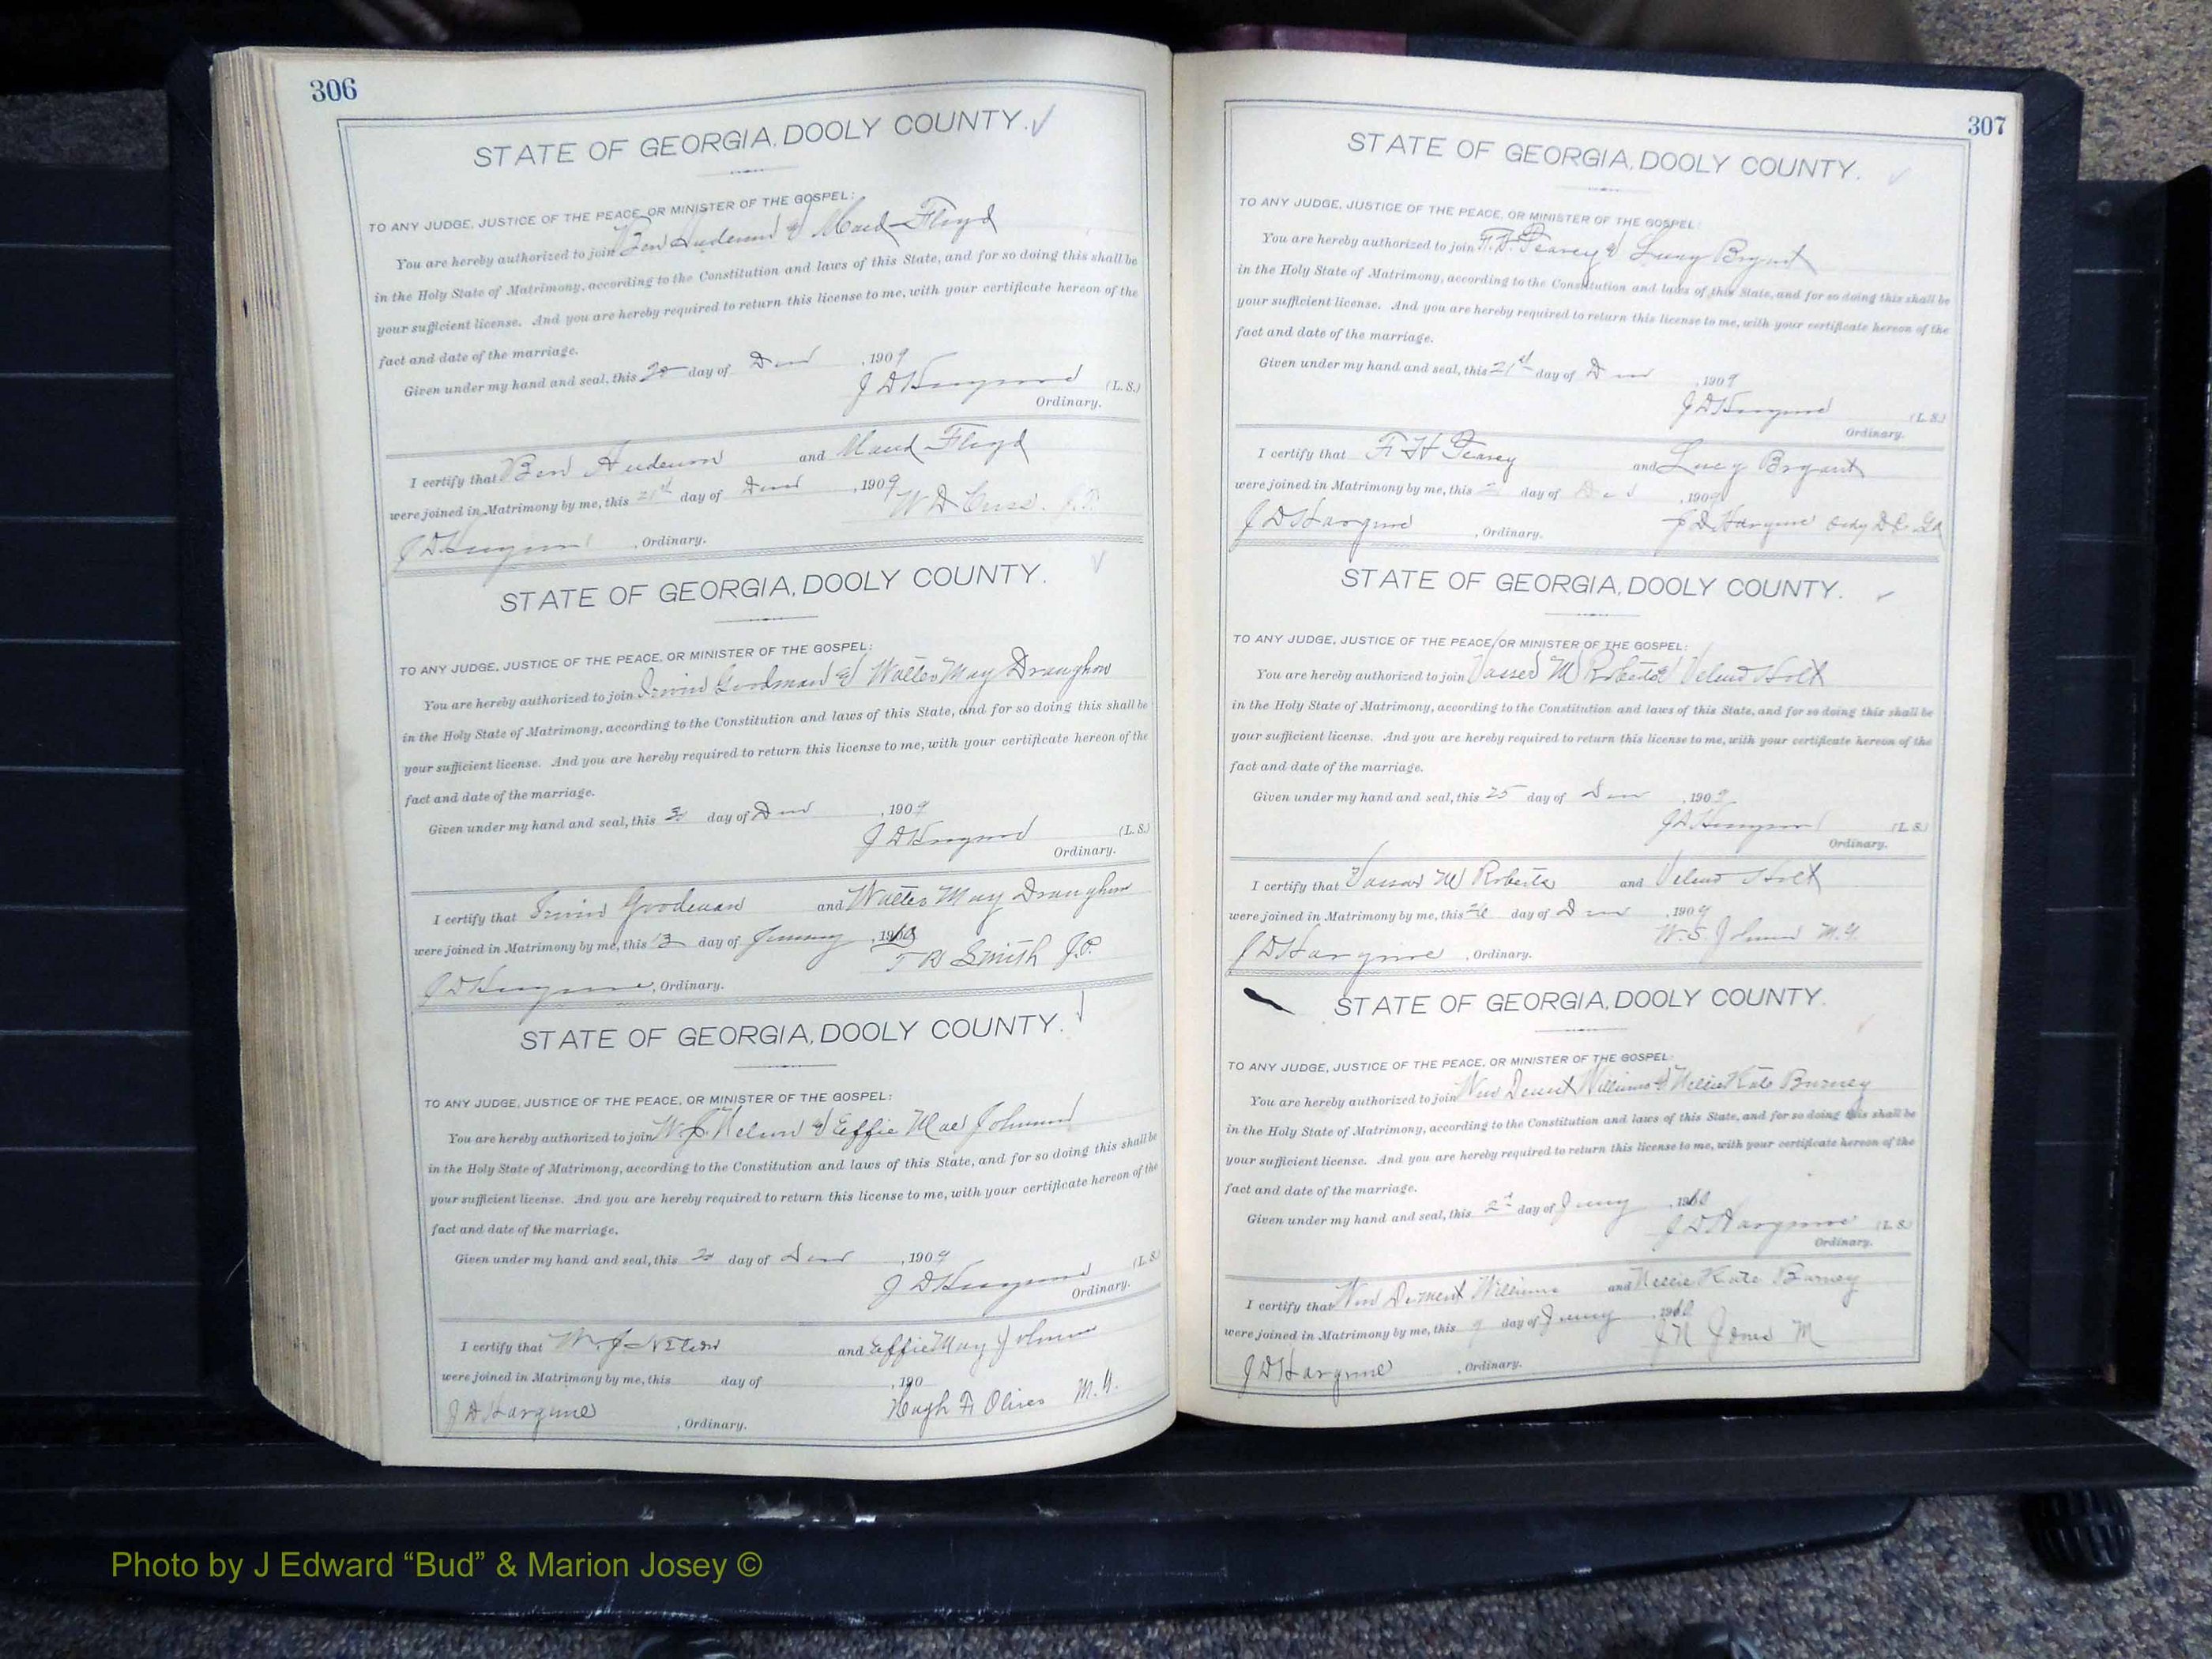 306
STATE OF GEORGIA, DOOLY COUNTY.
TO ANY JUDGE, JUSTICE OF THE PEACE, OR MINISTER OF THE GOSPEL:
You are hereby authorized to join Ben & Maud Floyd
in the Holy State of Matrimony, according to the Constitution and laws of this State, and for so doing this shall be
your sufficient license. And you are hereby required to return this license to me, with your certificate hereon of the
fact and date of the marriage.
Given under my hand and seal, this day of , 1909
(L. S.)
Ordinary.
I certify that Ben and Maud Floyd
were joined in Matrimony by me, this 21st day of , 1909
W D J.P.
, Ordinary.
STATE OF GEORGIA, DOOLY COUNTY.
TO ANY JUDGE, JUSTICE OF THE PEACE, OR MINISTER OF THE GOSPEL:
You are hereby authorized to join Irvin Goodman & Walter May Draughon
in the Holy State of Matrimony, according to the Constitution and laws of this State, and for so doing this shall be
your sufficient license. And you are hereby required to return this license to me, with your certificate hereon of the
fact and date of the marriage.
Given under my hand and seal, this day of , 1909
(L. S.)
Ordinary.
I certify that Irvin Goodman and Walter May Draughon
were joined in Matrimony by me, this 13 day of , 1910
Smith J.P.
, Ordinary.
STATE OF GEORGIA, DOOLY COUNTY.
TO ANY JUDGE, JUSTICE OF THE PEACE, OR MINISTER OF THE GOSPEL:
You are hereby authorized to join W. J. Nelson & Effie Mae Johnson
in the Holy State of Matrimony, according to the Constitution and laws of this State, and for so doing this shall be
your sufficient license. And you are hereby required to return this license to me, with your certificate hereon of the
fact and date of the marriage.
Given under my hand and seal, this day of , 1909
(L. S.)
Ordinary.
I certify that W. J. Nelson and Effie May Johnson
were joined in Matrimony by me, this day of , 190
Hugh F. Oliver M.G.
J D Hargrove , Ordinary.
307
STATE OF GEORGIA, DOOLY COUNTY.
TO ANY JUDGE, JUSTICE OF THE PEACE, OR MINISTER OF THE GOSPEL:
You are hereby authorized to join F. H. Peavey & Lucy Bryant
in the Holy State of Matrimony, according to the Constitution and laws of this State, and for so doing this shall be
your sufficient license. And you are hereby required to return this license to me, with your certificate hereon of the
fact and date of the marriage.
Given under my hand and seal, this 21st day of , 1909
(L. S.)
Ordinary.
I certify that F H Peavey and Lucy Bryant
were joined in Matrimony by me, this day of , 1909
J D Hargrove Ordy D.C. Ga
J D Hargrove , Ordinary.
STATE OF GEORGIA, DOOLY COUNTY.
TO ANY JUDGE, JUSTICE OF THE PEACE, OR MINISTER OF THE GOSPEL:
You are hereby authorized to join Vasser M Roberts & Holt
in the Holy State of Matrimony, according to the Constitution and laws of this State, and for so doing this shall be
your sufficient license. And you are hereby required to return this license to me, with your certificate hereon of the
fact and date of the marriage.
Given under my hand and seal, this 25 day of , 1909
(L. S.)
Ordinary.
I certify that M Roberts and Holt
were joined in Matrimony by me, this day of , 1909
W. S. M.G.
J D Hargrove , Ordinary.
STATE OF GEORGIA, DOOLY COUNTY.
TO ANY JUDGE, JUSTICE OF THE PEACE, OR MINISTER OF THE GOSPEL:
You are hereby authorized to join Williams & Nellie Kate Burney
in the Holy State of Matrimony, according to the Constitution and laws of this State, and for so doing this shall be
your sufficient license. And you are hereby required to return this license to me, with your certificate hereon of the
fact and date of the marriage.
Given under my hand and seal, this 2nd day of , 1910
J D Hargrove (L. S.)
Ordinary.
I certify that Williams and Nellie Kate Burney
were joined in Matrimony by me, this day of , 1910
J N Jones M
J D Hargrove , Ordinary.
Photo by J Edward “Bud” & Marion Josey ©